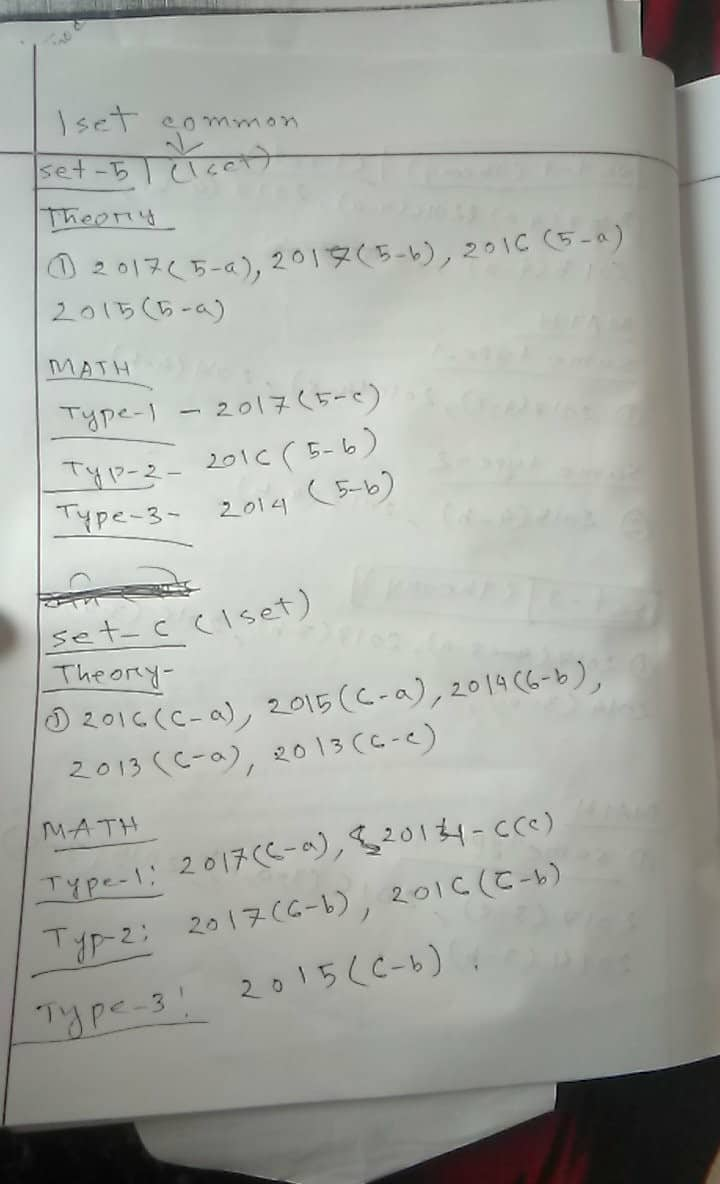 1 set common
set-5 (1set)
Theory
① 2017(5-a), 2017(5-b), 2016(5-a)
2015(5-a)
MATH
Type-1 - 2017(5-c)
Typ-2- 2016(5-b)
Type-3- 2014 (5-b)
set-6 (1set)
Theory-
① 2016(6-a), 2015(6-a), 2014(6-b),
2013(6-a), 2013(6-c)
MATH
Type-1: 2017(6-a), 2014-6(c)
Typ-2: 2017(6-b), 2016(6-b)
Type-3: 2015(6-b).